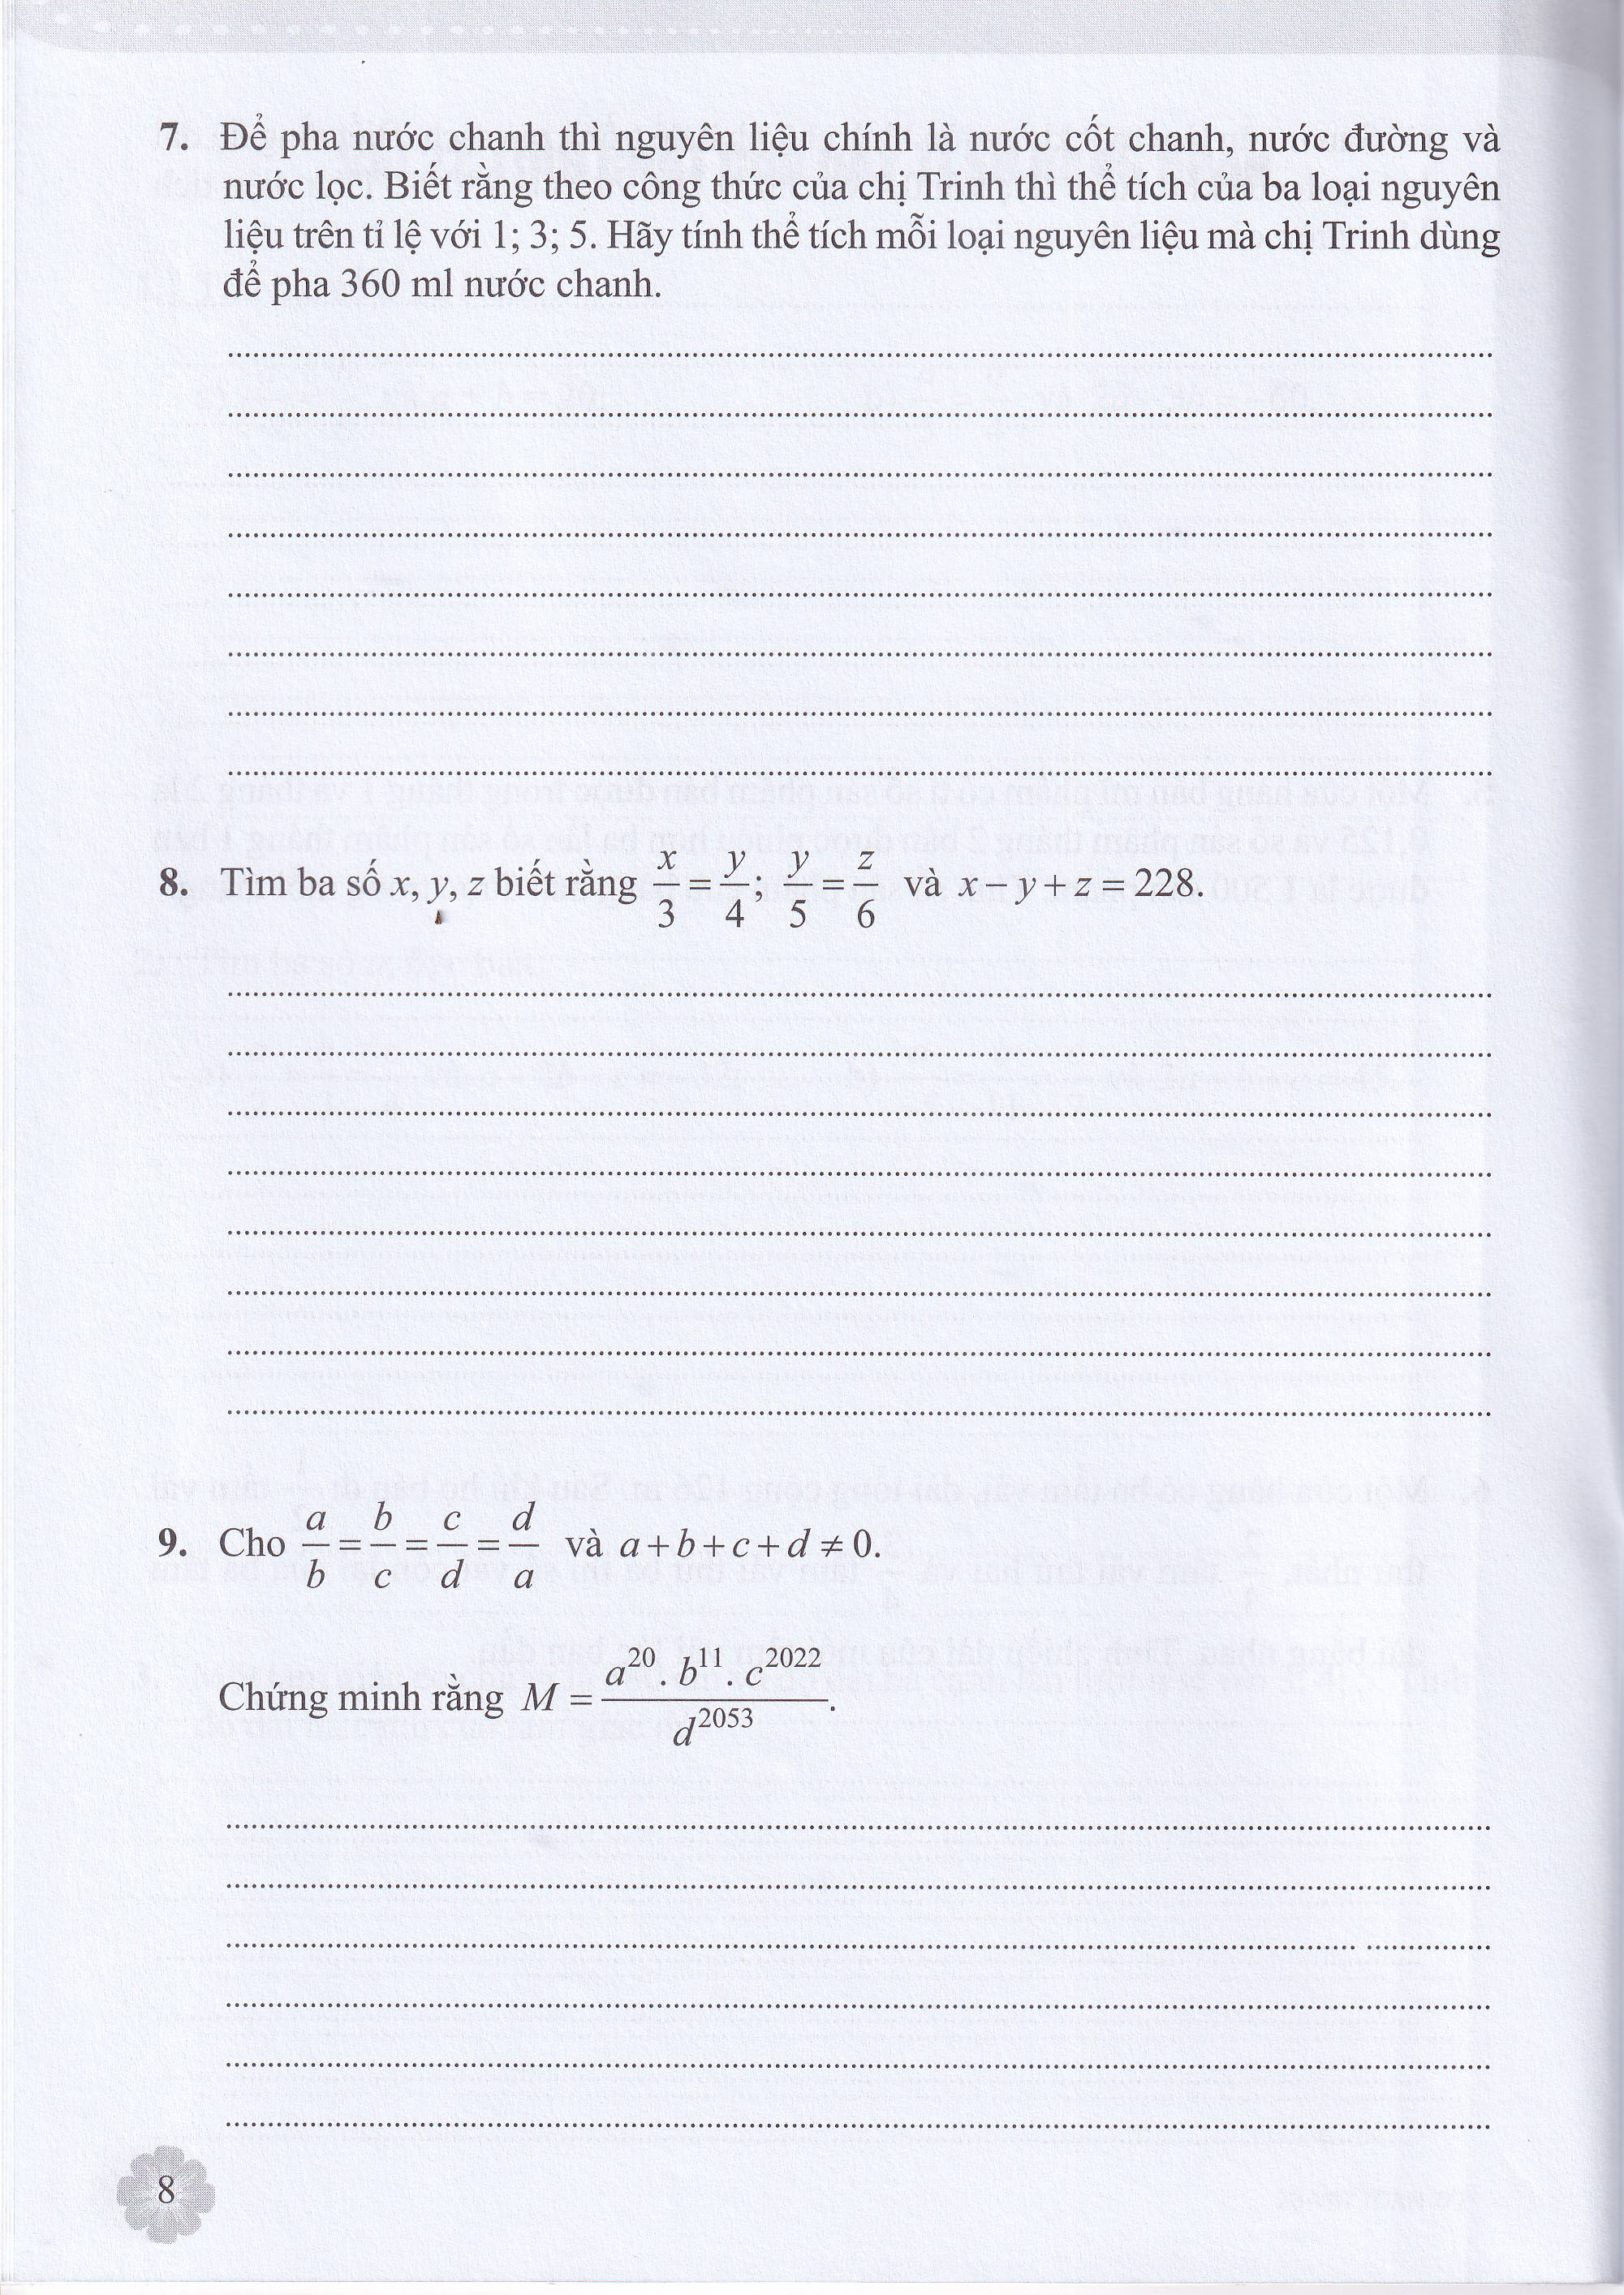 7. Để pha nước chanh thì nguyên liệu chính là nước cốt chanh, nước đường và
nước lọc. Biết rằng theo công thức của chị Trinh thì thể tích của ba loại nguyên
liệu trên tỉ lệ với 1; 3; 5. Hãy tính thể tích mỗi loại nguyên liệu mà chị Trinh dùng
để pha 360 ml nước chanh.
8. Tìm ba số x, y, z biết rằng x/3 = y/4; y/5 = z/6 và x − y + z = 228.
9. Cho a/b = b/c = c/d = d/a và a + b + c + d ≠ 0.
Chứng minh rằng M = (a^20 . b^11 . c^2022)/d^2053.
8